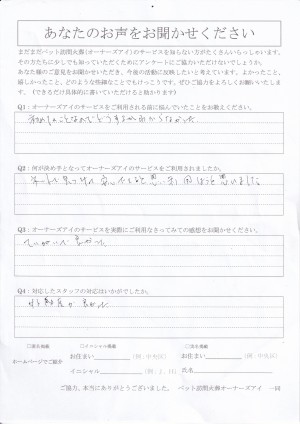 あなたのお声をお聞かせください
まだまだペット訪問火葬(オーナーズアイ)のサービスを知らない方がたくさんいらっしゃいます。
その方たちに少しでも知っていただくためにアンケートにご協力いただけないでしょうか。
あなた様のご意見をお聞かせいただき、今後の活動に反映したいと考えています。よかったこと、
嬉しかったこと、どのような些細なことでもけっこうです。ぜひご協力をよろしくお願いいたします。
(できるだけ具体的に書いていただけると助かります)
Q1：オーナーズアイのサービスをご利用される前に悩んでいたことをお教えください。
初めてのことなのでどうするか分からなかった
Q2：何が決め手となってオーナーズアイのサービスをご利用されましたか。
と思い利用しようと思いました
Q3：オーナーズアイのサービスを実際にご利用なさってみての感想をお聞かせください。
ていねいで良かった
Q4：対応したスタッフの対応はいかがでしたか。
良かった
□匿名掲載 □イニシャル掲載 □実名掲載
ホームページでご紹介
お住まい (例：中央区) お住まい (例：中央区)
イニシャル (例：J，H) 氏名
ご協力、本当にありがとうございました。 ペット訪問火葬オーナーズアイ 一同